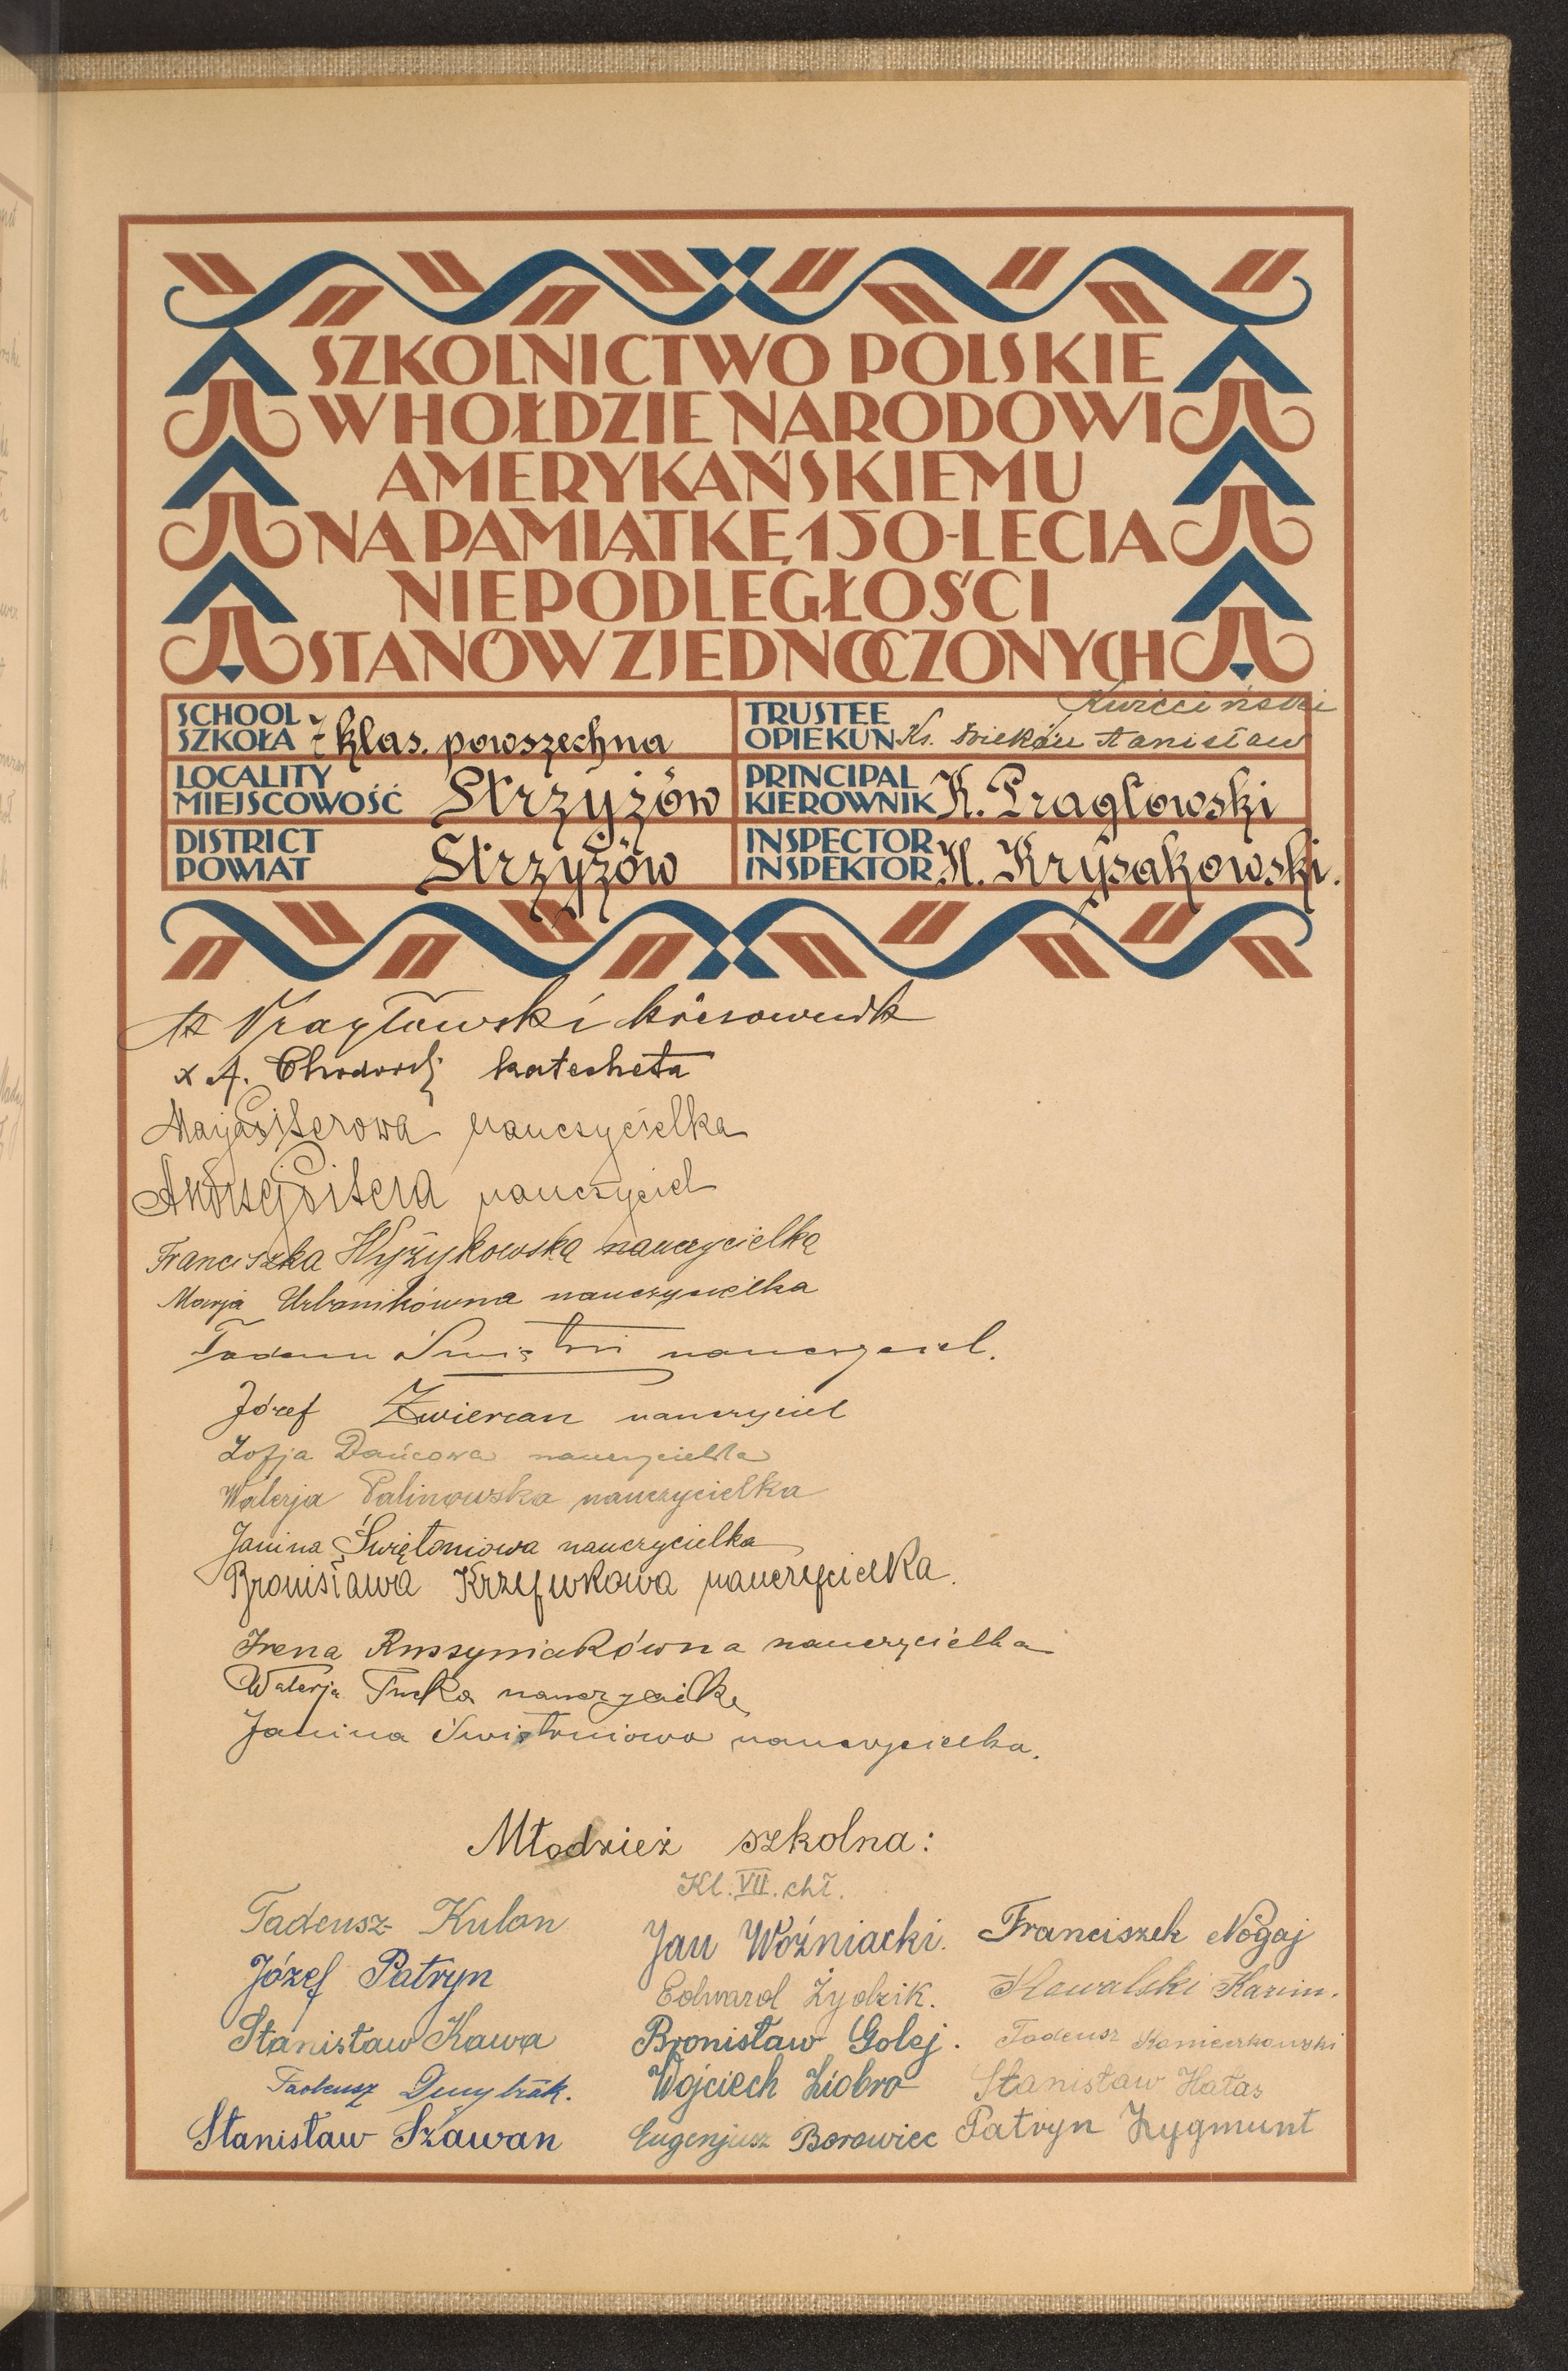 SZKOLNICTWO POLSKIE
W HOŁDZIE NARODOWI
AMERYKAŃSKIEMU
NA PAMIĄTKĘ 150-LECIA
NIEPODLEGŁOŚCI
STANÓW ZJEDNOCZONYCH
SCHOOL
SZKOŁA 7 klas. powszechna
TRUSTEE Kwieciński
OPIEKUN Ks. Stanisław
LOCALITY
MIEJSCOWOŚĆ Strzyżów
PRINCIPAL
KIEROWNIK K. Pragłowski
DISTRICT
POWIAT Strzyżów
INSPECTOR
INSPEKTOR H. Krysakowski.
Pragłowski kierownik
x A. katecheta
Marja Siterowa nauczycielka
Andrzej Sitera nauczyciel
Franciszka Wyżykowska nauczycielka
Marja Urbanikówna nauczycielka
Tadeusz nauczyciel.
Józef Zwiercan nauczyciel
Zofja Dańcowa nauczycielka
Walerja Palinowska nauczycielka
Janina Świętoniowa nauczycielka
Bronisława nauczycielka.
Irena Ruszyniakówna nauczycielka
Walerja nauczycielka
Janina nauczycielka.
Młodzież szkolna:
Kl. VII. chł.
Tadeusz Kulon
Jan Woźniacki.
Franciszek Nogaj
Józef Patryn
Edward Żydzik.
Kowalski Kazim.
Stanisław Kawa
Bronisław Golej.
Tadeusz
Tadeusz Dmytrak.
Wojciech Ziobro
Stanisław Hałas
Stanisław Szawan
Eugenjusz Borowiec
Patryn Zygmunt